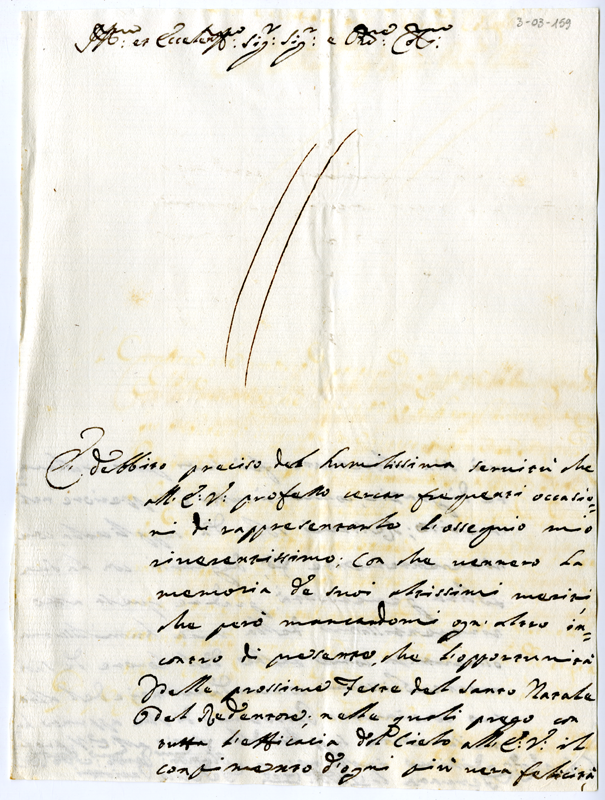 3-03-159
Ill.mo et Eccelent.mo Sig.r Sig.r e
È debbito preciso del humilissima servitù che
all'E: V: professo cercar frequenti occasio=
ni di rappresentarle l'ossequio mio
riverentissimo; con che venero la
memoria de suoi altissimi meriti
che però mancandomi ogn altro in=
contro di presente, che l'opportunità
Delle prossime Feste del Santo Natale
del Redentore; nelle quali prego con
tutta l'efficacia dal Cielo all'E: V: il
compimento d'ogni più vera felicità